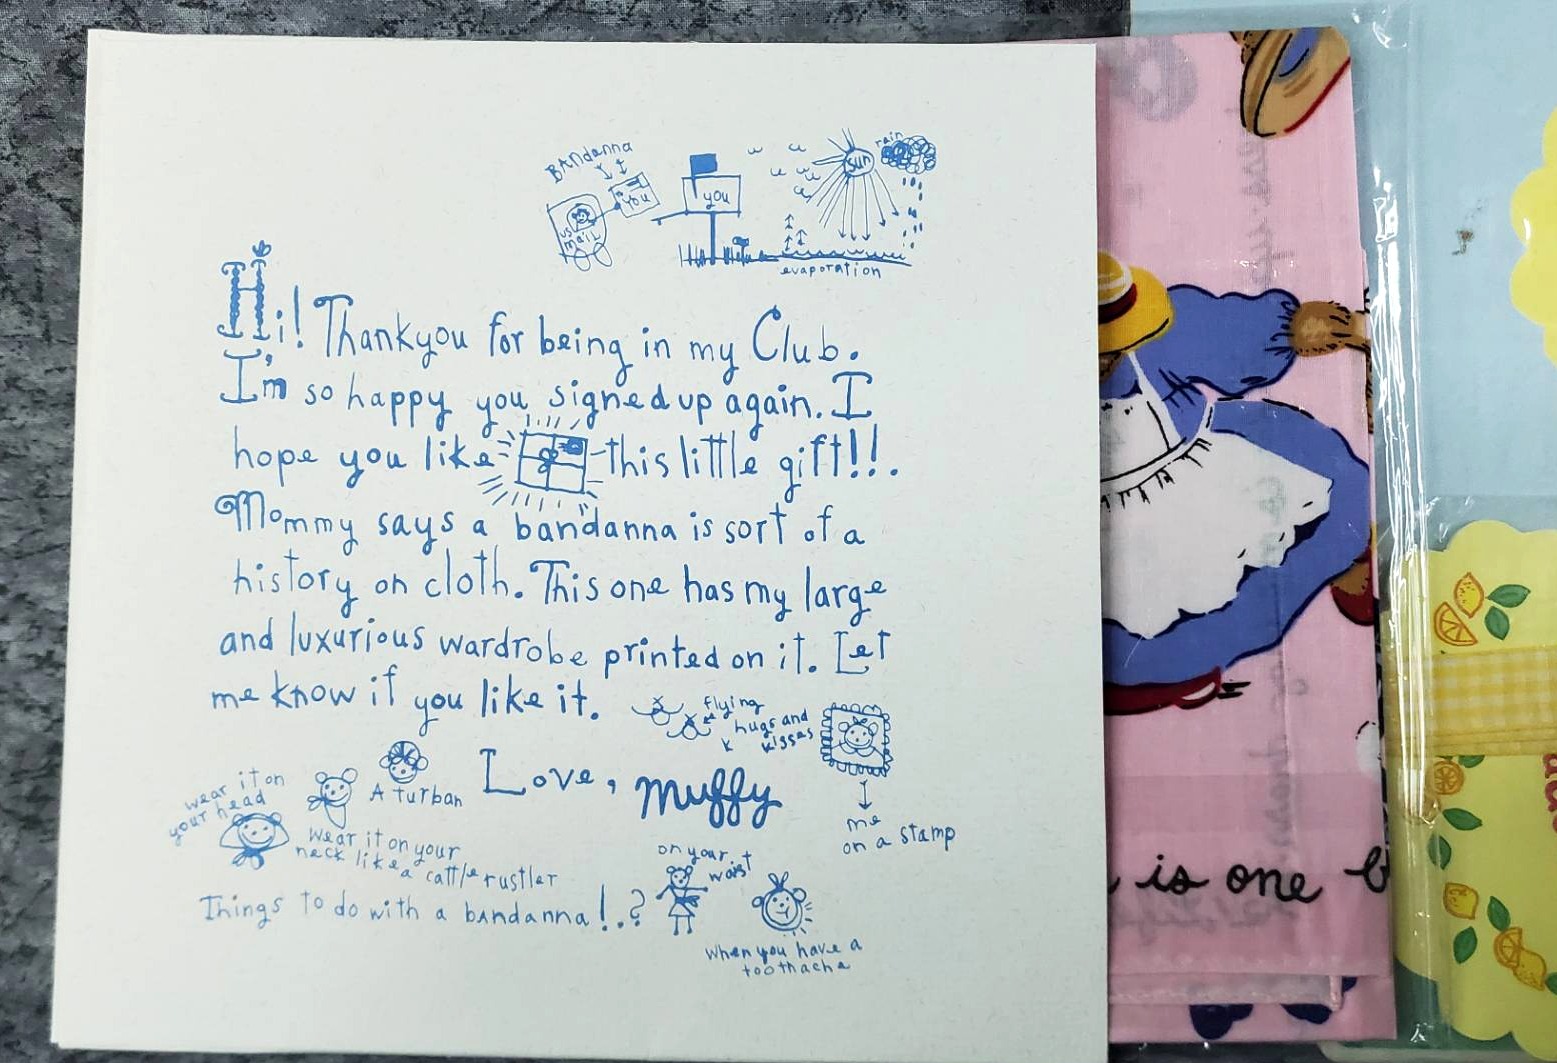 BANdanna
YOU
US MAIL
you
sun
rain
evaporation
Hi! Thankyou for being in my Club.
I'm so happy you signed up again. I
hope you like this little gift!!.
Mommy says a bandanna is sort of a
history on cloth. This one has my large
and luxurious wardrobe printed on it. Let
me know if you like it.
flying
hugs and
kisses
Love, Muffy
me
on a stamp
wear it on
your head
A turban
wear it on your
neck like a cattle rustler
on your
waist
Things to do with a bandanna!..?
when you have a
toothache
is one